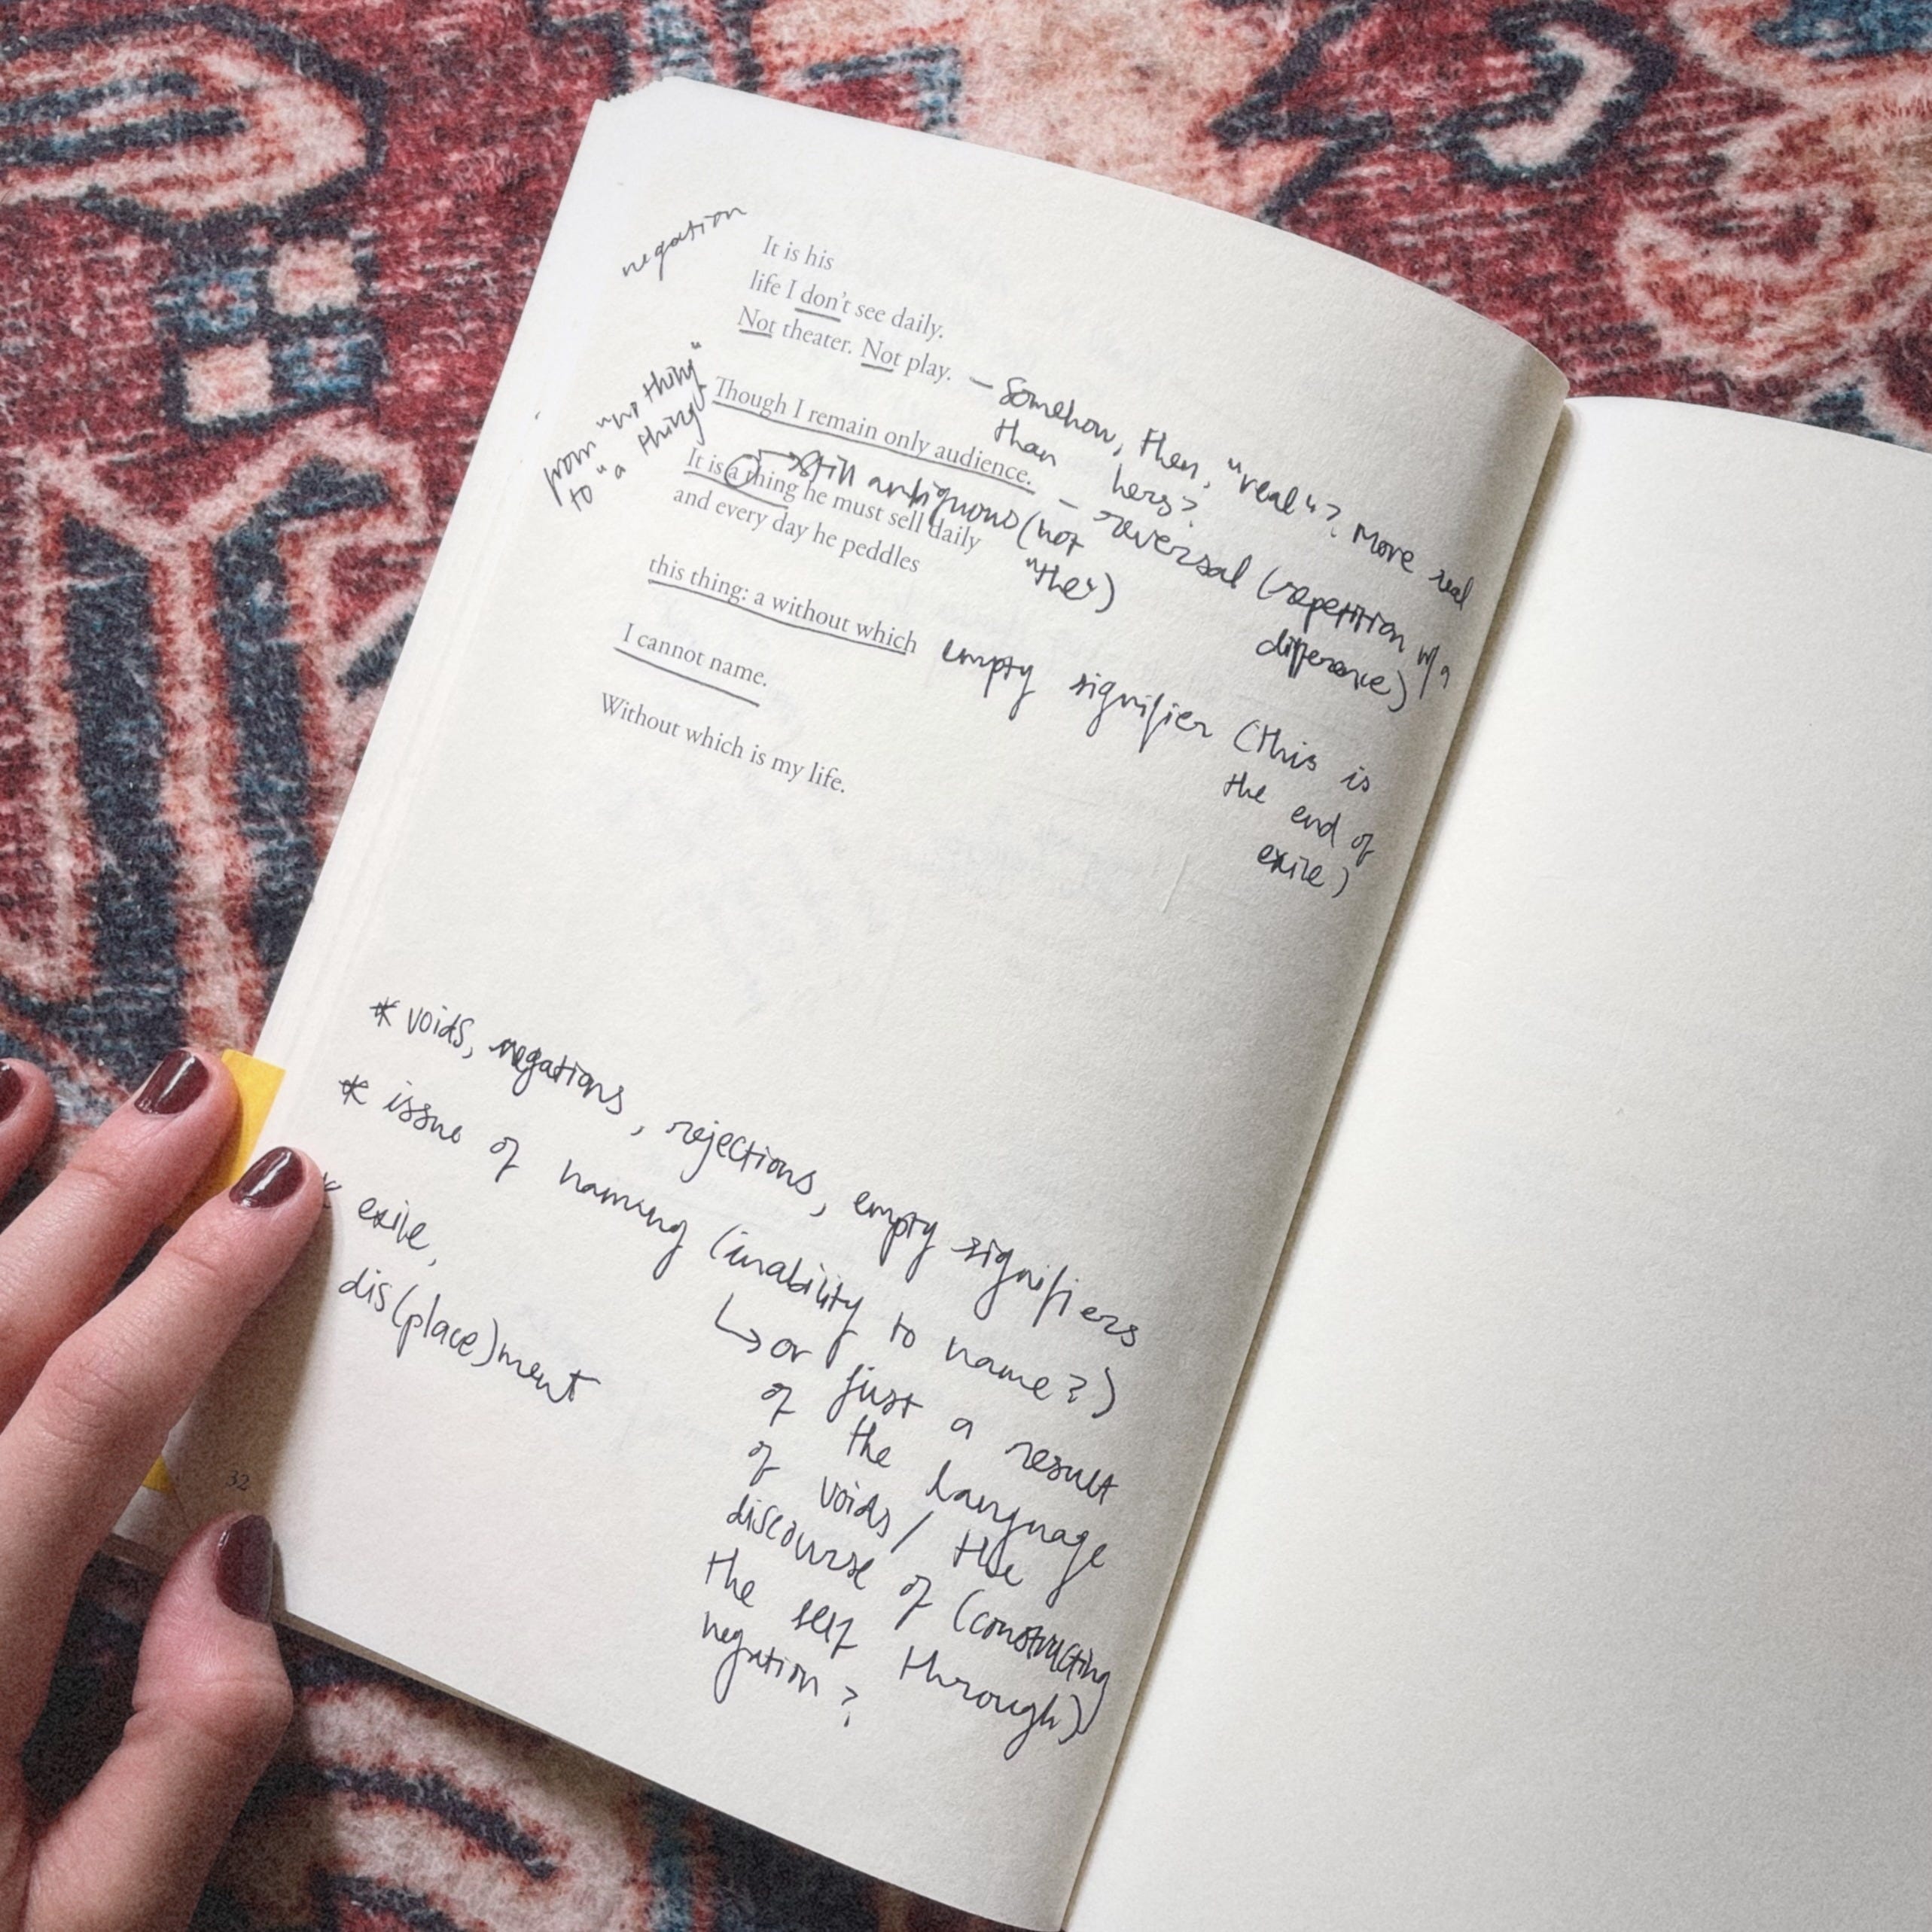 negation
It is his
life I don't see daily.
Not theater. Not play.
— Somehow, then, "real"? More real
than hers?
from "no thing"
to "a thing"
Though I remain only audience.
— reversal (repetition w/ a
difference)
It is a thing he must sell daily
→ still ambiguous (not
"the")
and every day he peddles
this thing: a without which
empty signifier (this is
the end of
exile)
I cannot name.
Without which is my life.
* voids, negations, rejections, empty signifiers
* issue of naming (inability to name?)
↳ or just a result
of the language
of voids / the
discourse of (constructing
the self through)
negation?
* exile,
dis(place)ment
32